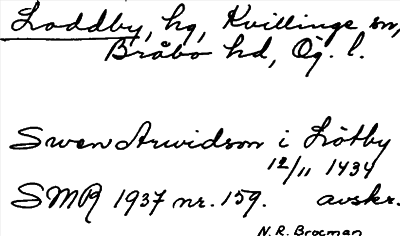 Loddby, hg, Kvillinge sn,
Bråbo hd, Ög. l.
Swen Arwidson i Lötby
12/11 1434
SMR 1937 nr. 159. avskr.
N.R. Brocman